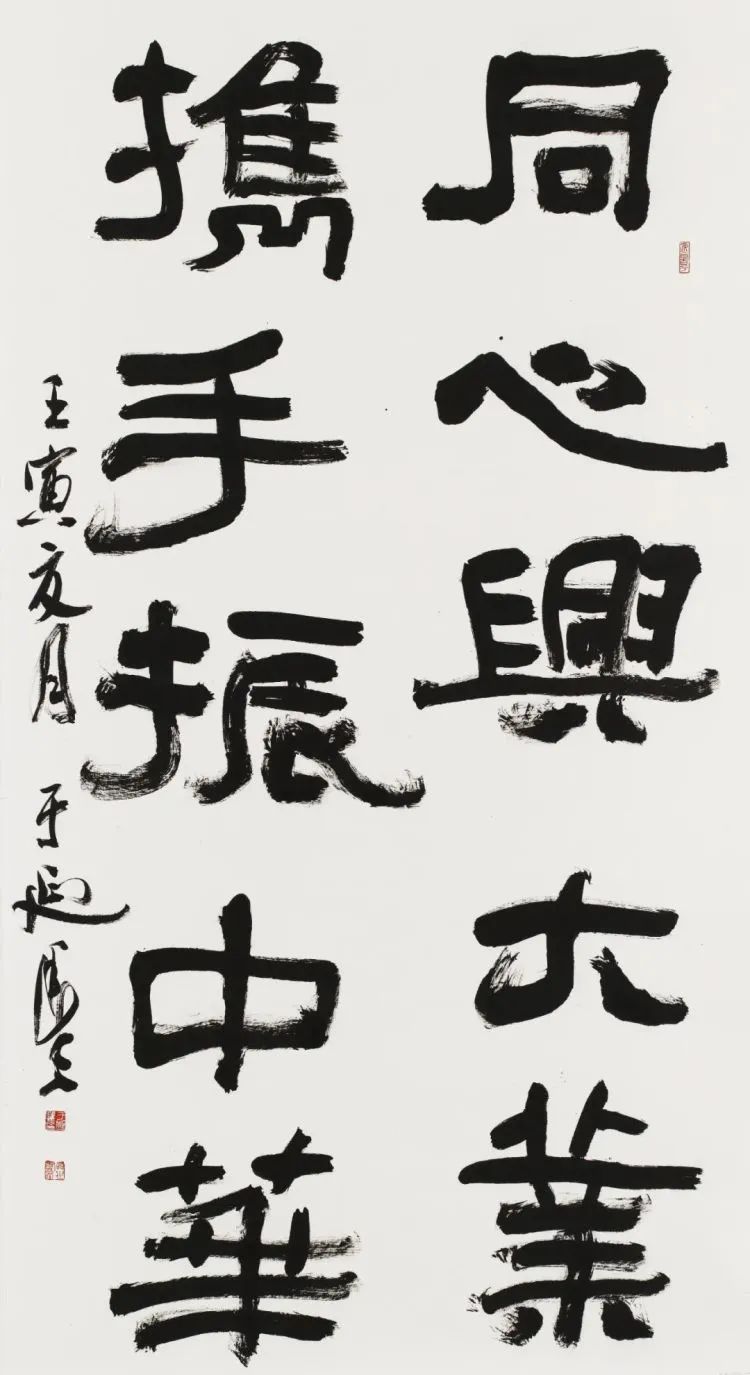 同心興大業
携手振中華
壬寅夏月 于